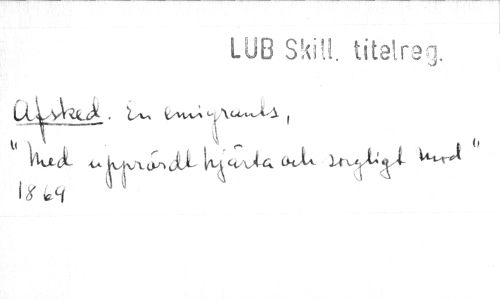 LUB Skill. titelreg.
Afsked. En emigrants,
"Med upprördt hjärta och sorgligt mod"
1869